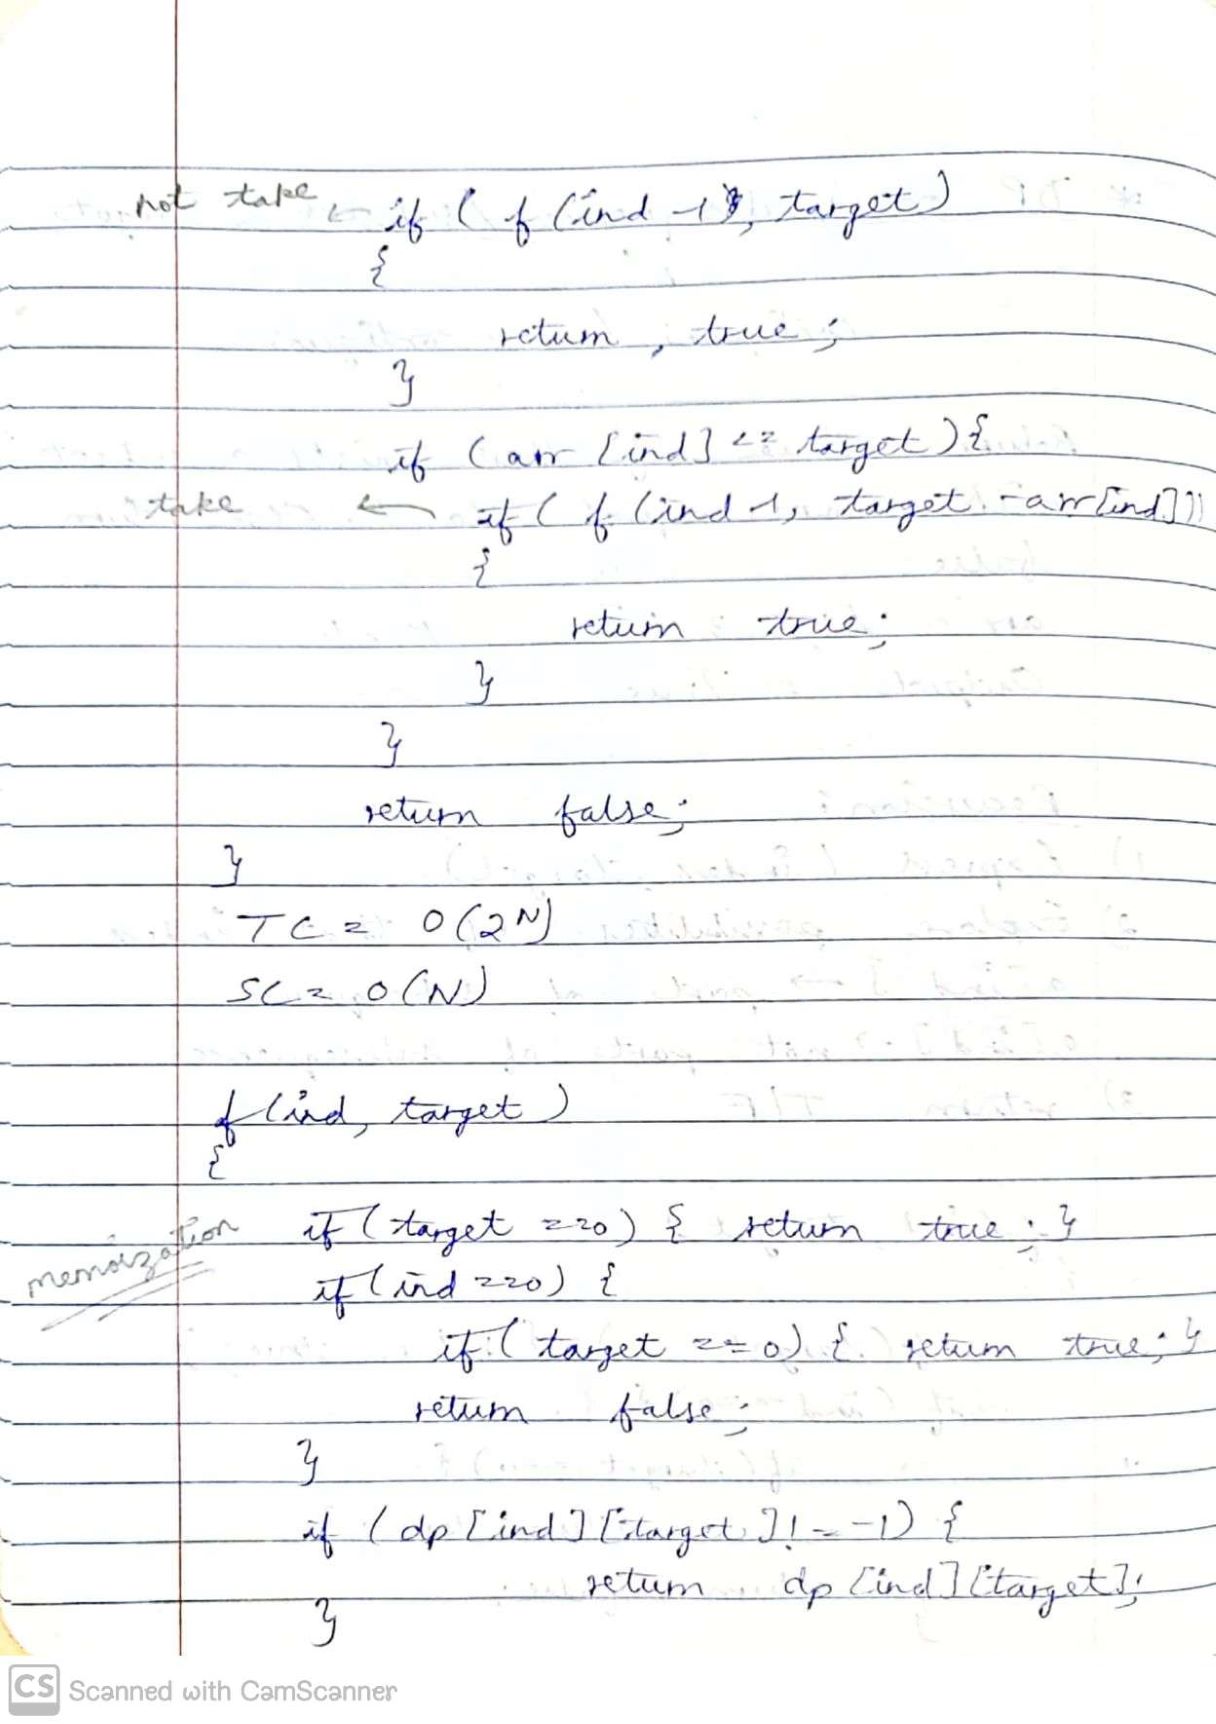 not take ← if ( f (ind -1), target)
{
return , true;
}
if (arr [ind] <= target) {
take ← if ( f (ind -1, target - arr[ind]))
{
return true;
}
}
return false;
}
TC = O(2^N)
SC = O(N)
f (ind, target)
{
if (target ==0) { return true; }
memoization
if (ind ==0) {
if (target ==0) { return true; }
return false;
}
if (dp [ind] [target] != -1) {
return dp [ind] [target];
}
CS Scanned with CamScanner